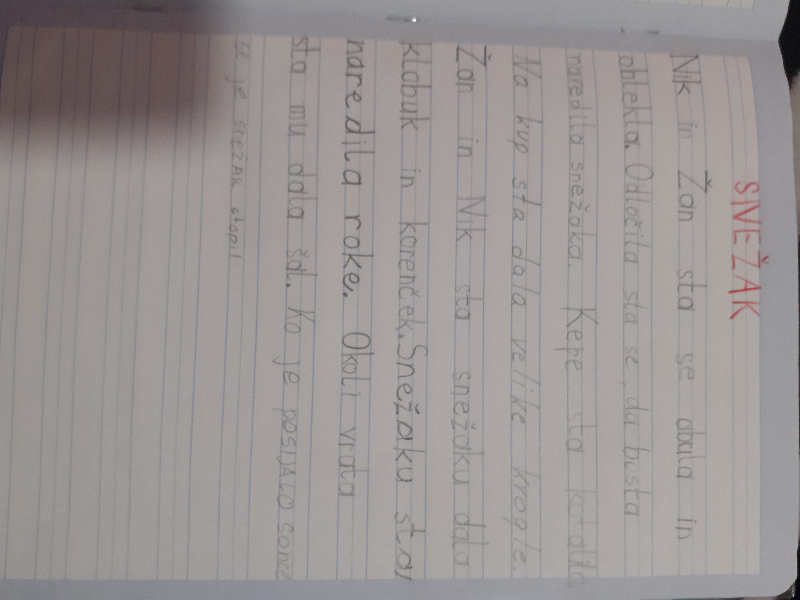 SNEŽAK
Nik in Žan sta se obula in
oblekla. Odločila sta se, da bosta
naredila snežaka. Kepe sta kotalila
Na kup sta dala velike krogle.
Žan in Nik sta snežaku dala
klobuk in korenček. Snežaku sta
naredila roke. Okoli vrata
sta mu dala šal. Ko je POSIJALO sonce
se je snežak stopil